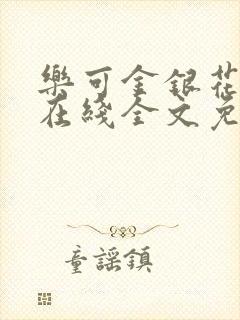 樂可金銀花
在綫全文免
童謡鎮